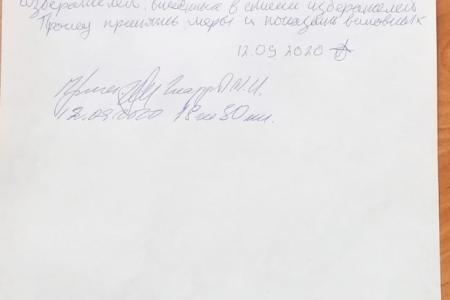 избирателей, внесённых в списки избирателей
Прошу принять меры и наказать виновных
12.09.2020
12.09.2020 18 30